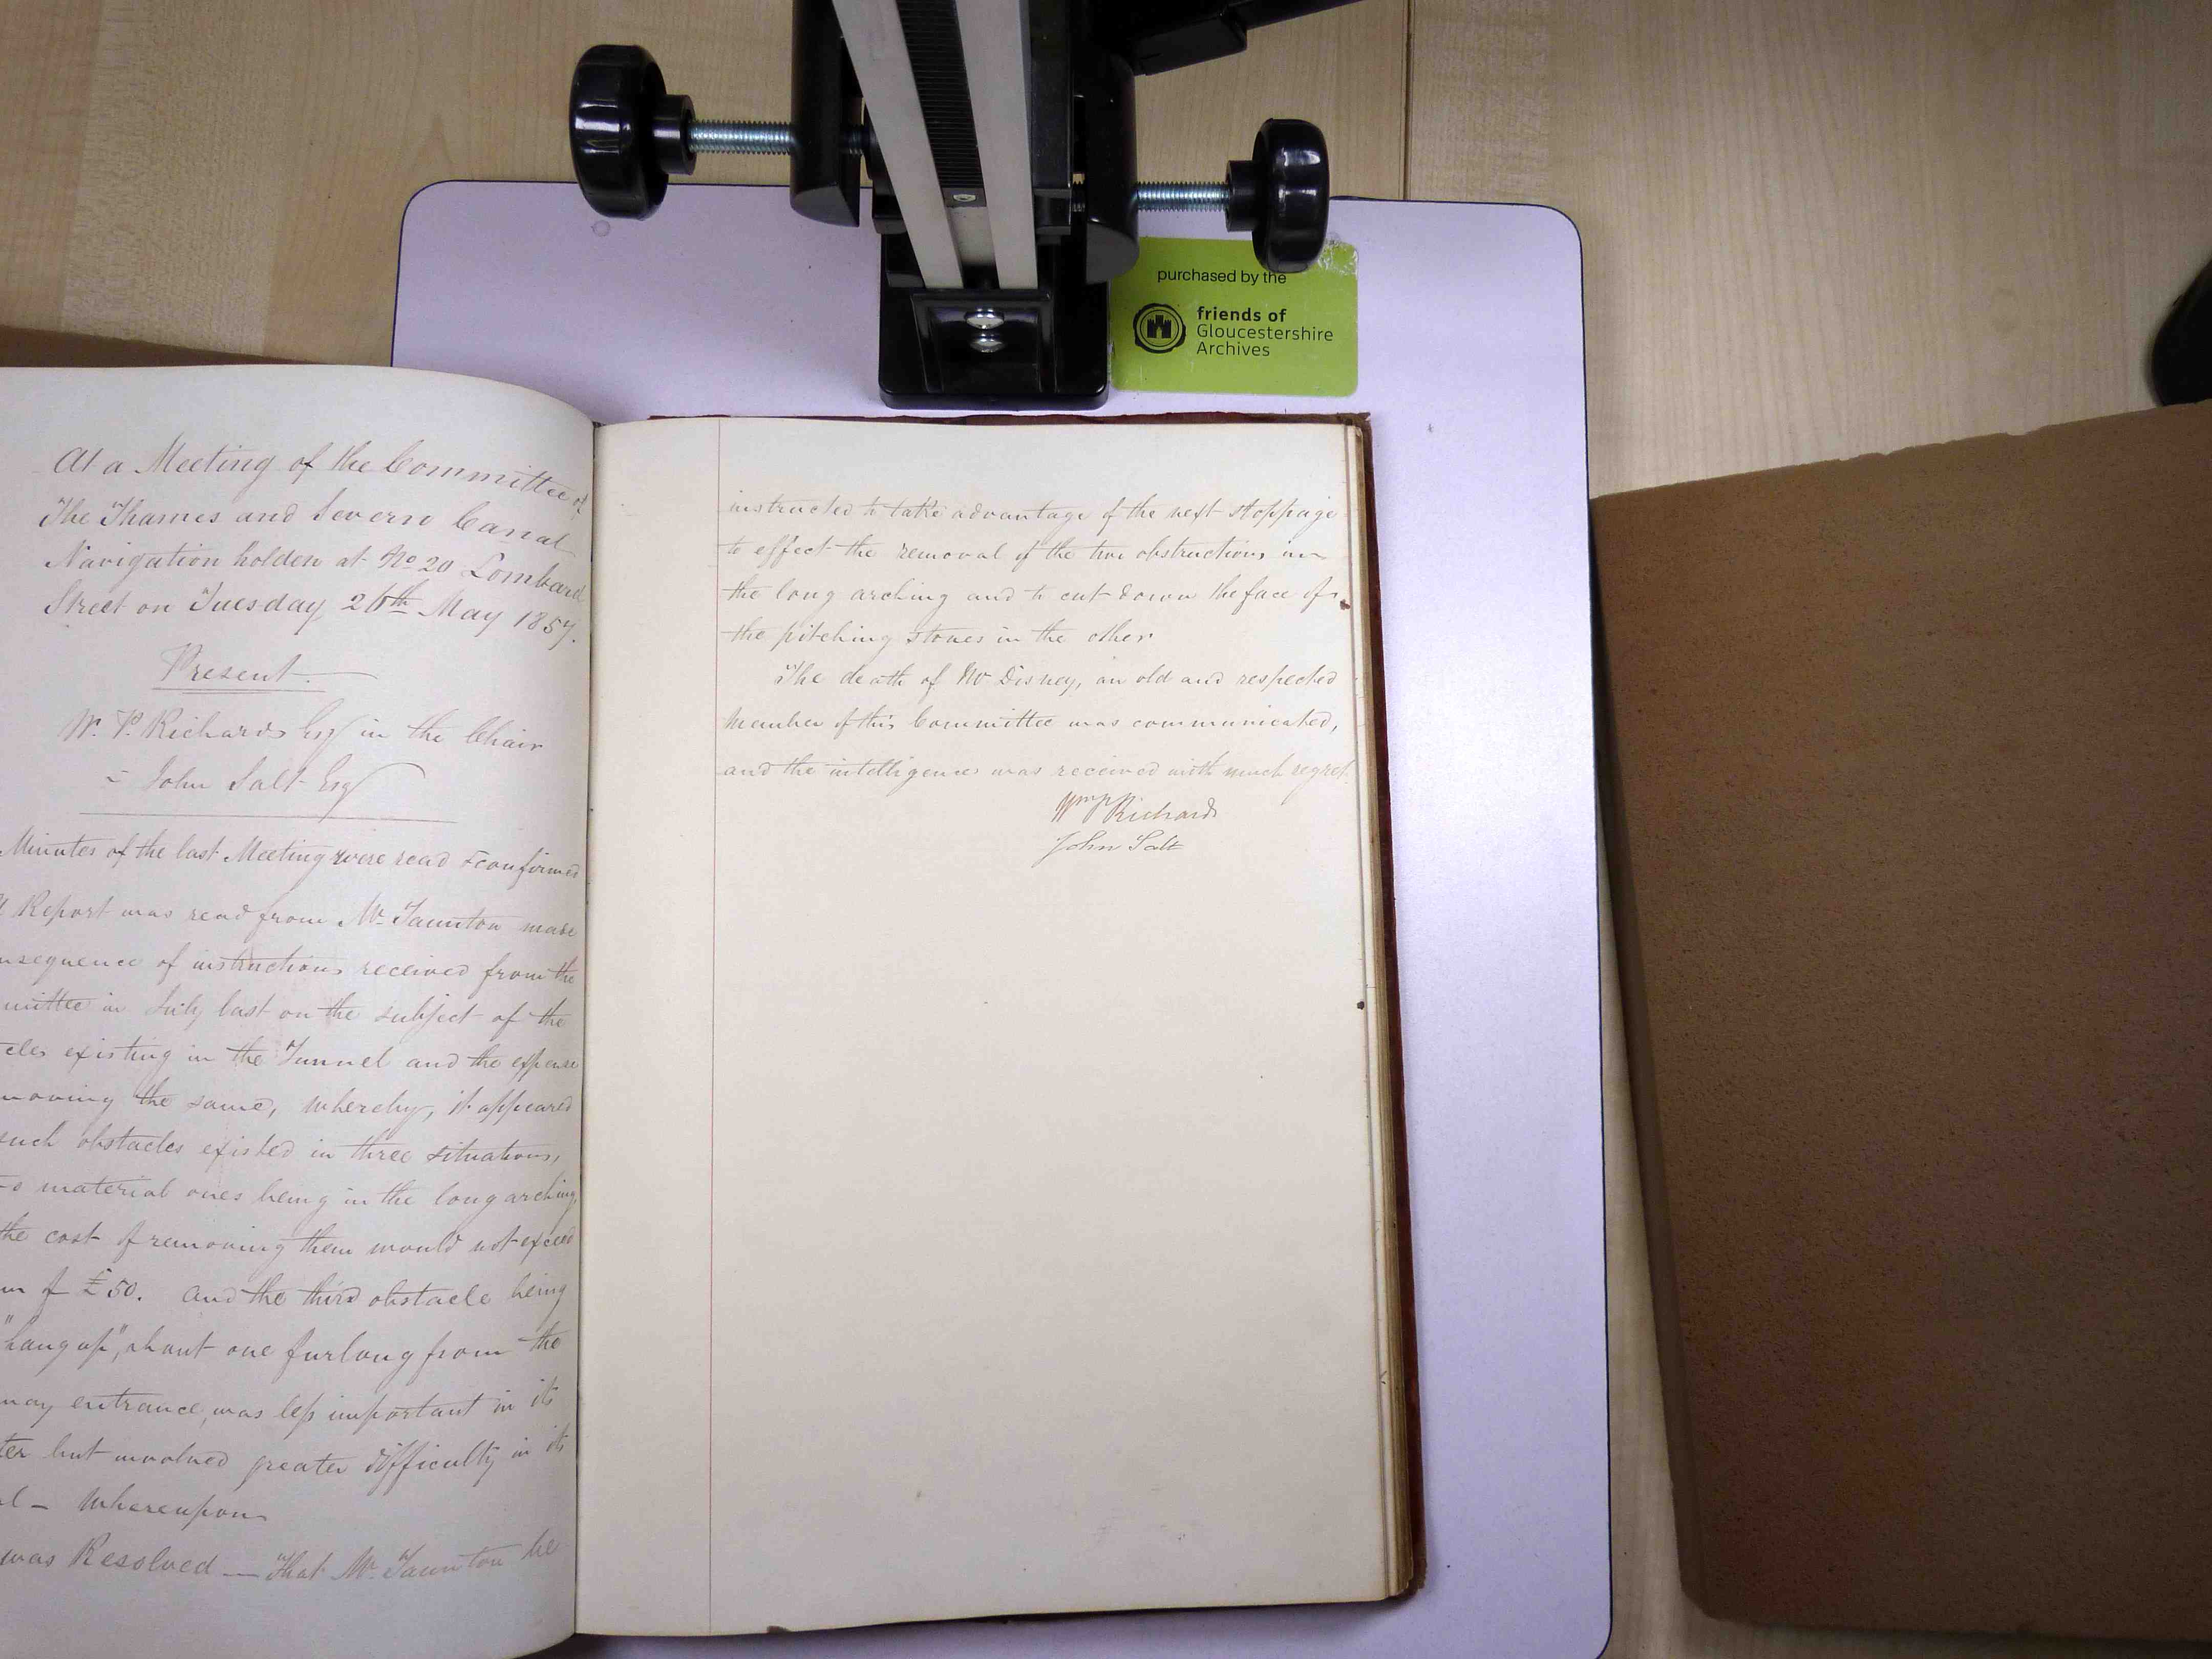 purchased by the
friends of
Gloucestershire
Archives
At a Meeting of the Committee of
The Thames and Severn Canal
Navigation holden at No 20 Lombard
Street on Tuesday, 26th May 1857.
Present.
W. P. Richards Esq in the Chair
" John Salt Esq
Minutes of the last Meeting were read & confirmed
Report was read from Mr Taunton made
nsequence of instructions received from the
mittee in July last on the subject of the
cles existing in the Tunnel and the expense
moving the same, whereby, it appeared
such obstacles existed in three situations,
o material ones being in the long arching
the cost of removing them would not exceed
m of £50. and the third obstacle being
"hang up", about one furlong from the
way entrance, was less important in its
ter but involved greater difficulty in its
al – Whereupon
was Resolved — That Mr Taunton be
instructed to take advantage of the next stoppage
to effect the removal of the two obstructions in
the long arching and to cut down the face of
the pitching stones in the other.
The death of Mr Disney, an old and respected
Member of this Committee was communicated,
and the intelligence was received with much regret.
Wm P Richards
John Salt